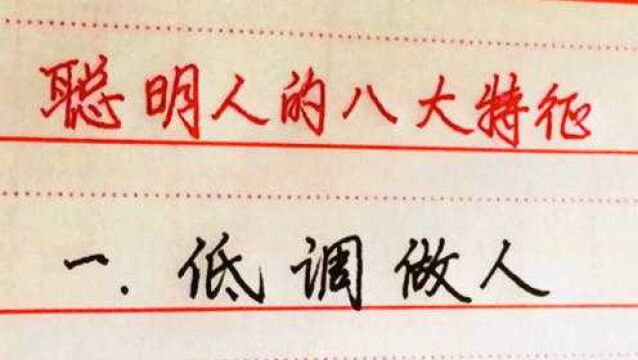 聪明人的八大特征
一.低调做人